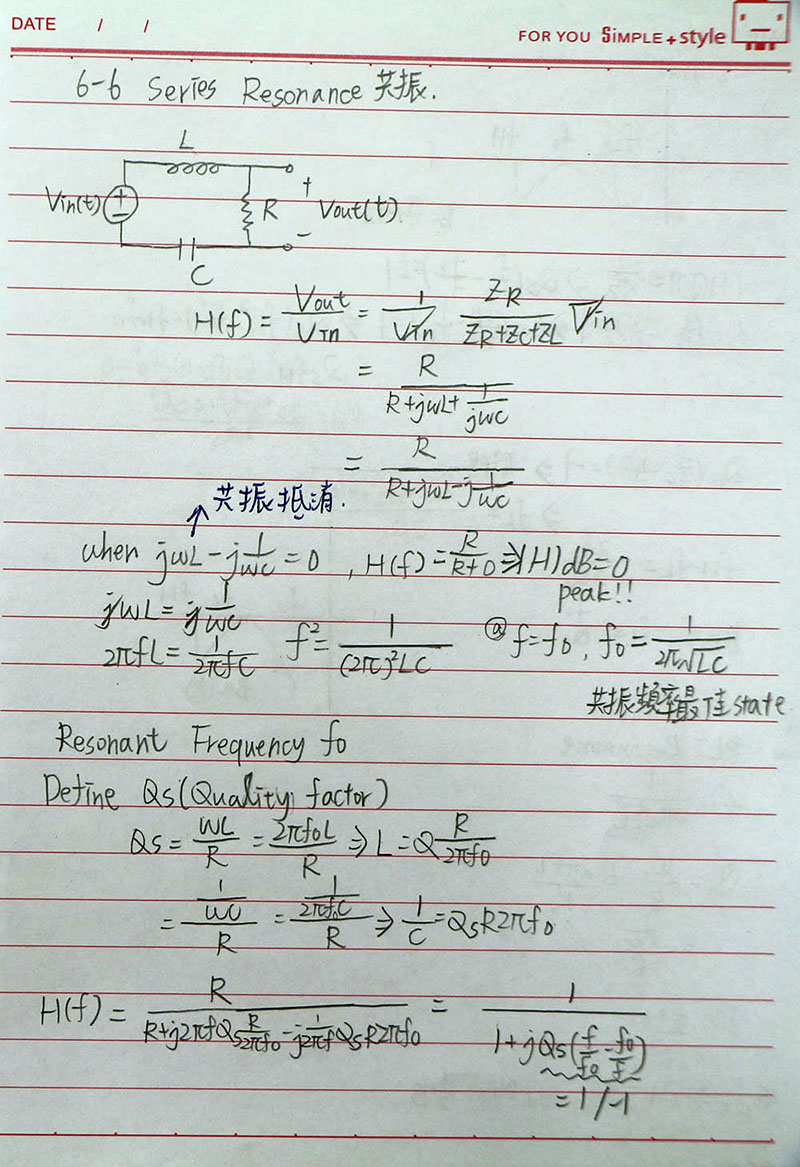 DATE / /
FOR YOU SiMPLE+style
6-6 Series Resonance 共振.
L
Vin(t) + − R + Vout(t) −
C
H(f) = Vout/Vin = 1/Vin ZR/(ZR+ZC+ZL) Vin
= R/(R+jωL+1/(jωC))
= R/(R+jωL-j1/(ωC))
共振抵消.
when jωL-j1/(ωC)=0, H(f)=R/(R+0)⇒|H|dB=0
peak!!
jωL=j1/(ωC)
2πfL=1/(2πfC) f²=1/((2π)²LC) @f=f0, f0=1/(2π√LC)
共振頻率最佳state
Resonant Frequency f0
Define Qs(Quality factor)
Qs=ωL/R=2πf0L/R⇒L=Q R/(2πf0)
=(1/(ωC))/R=(1/(2πf0C))/R⇒1/C=QsR2πf0
H(f)=R/(R+j2πfQs R/(2πf0)-j1/(2πf) QsR2πf0)=1/(1+jQs(f/f0-f0/f))
=1/-1